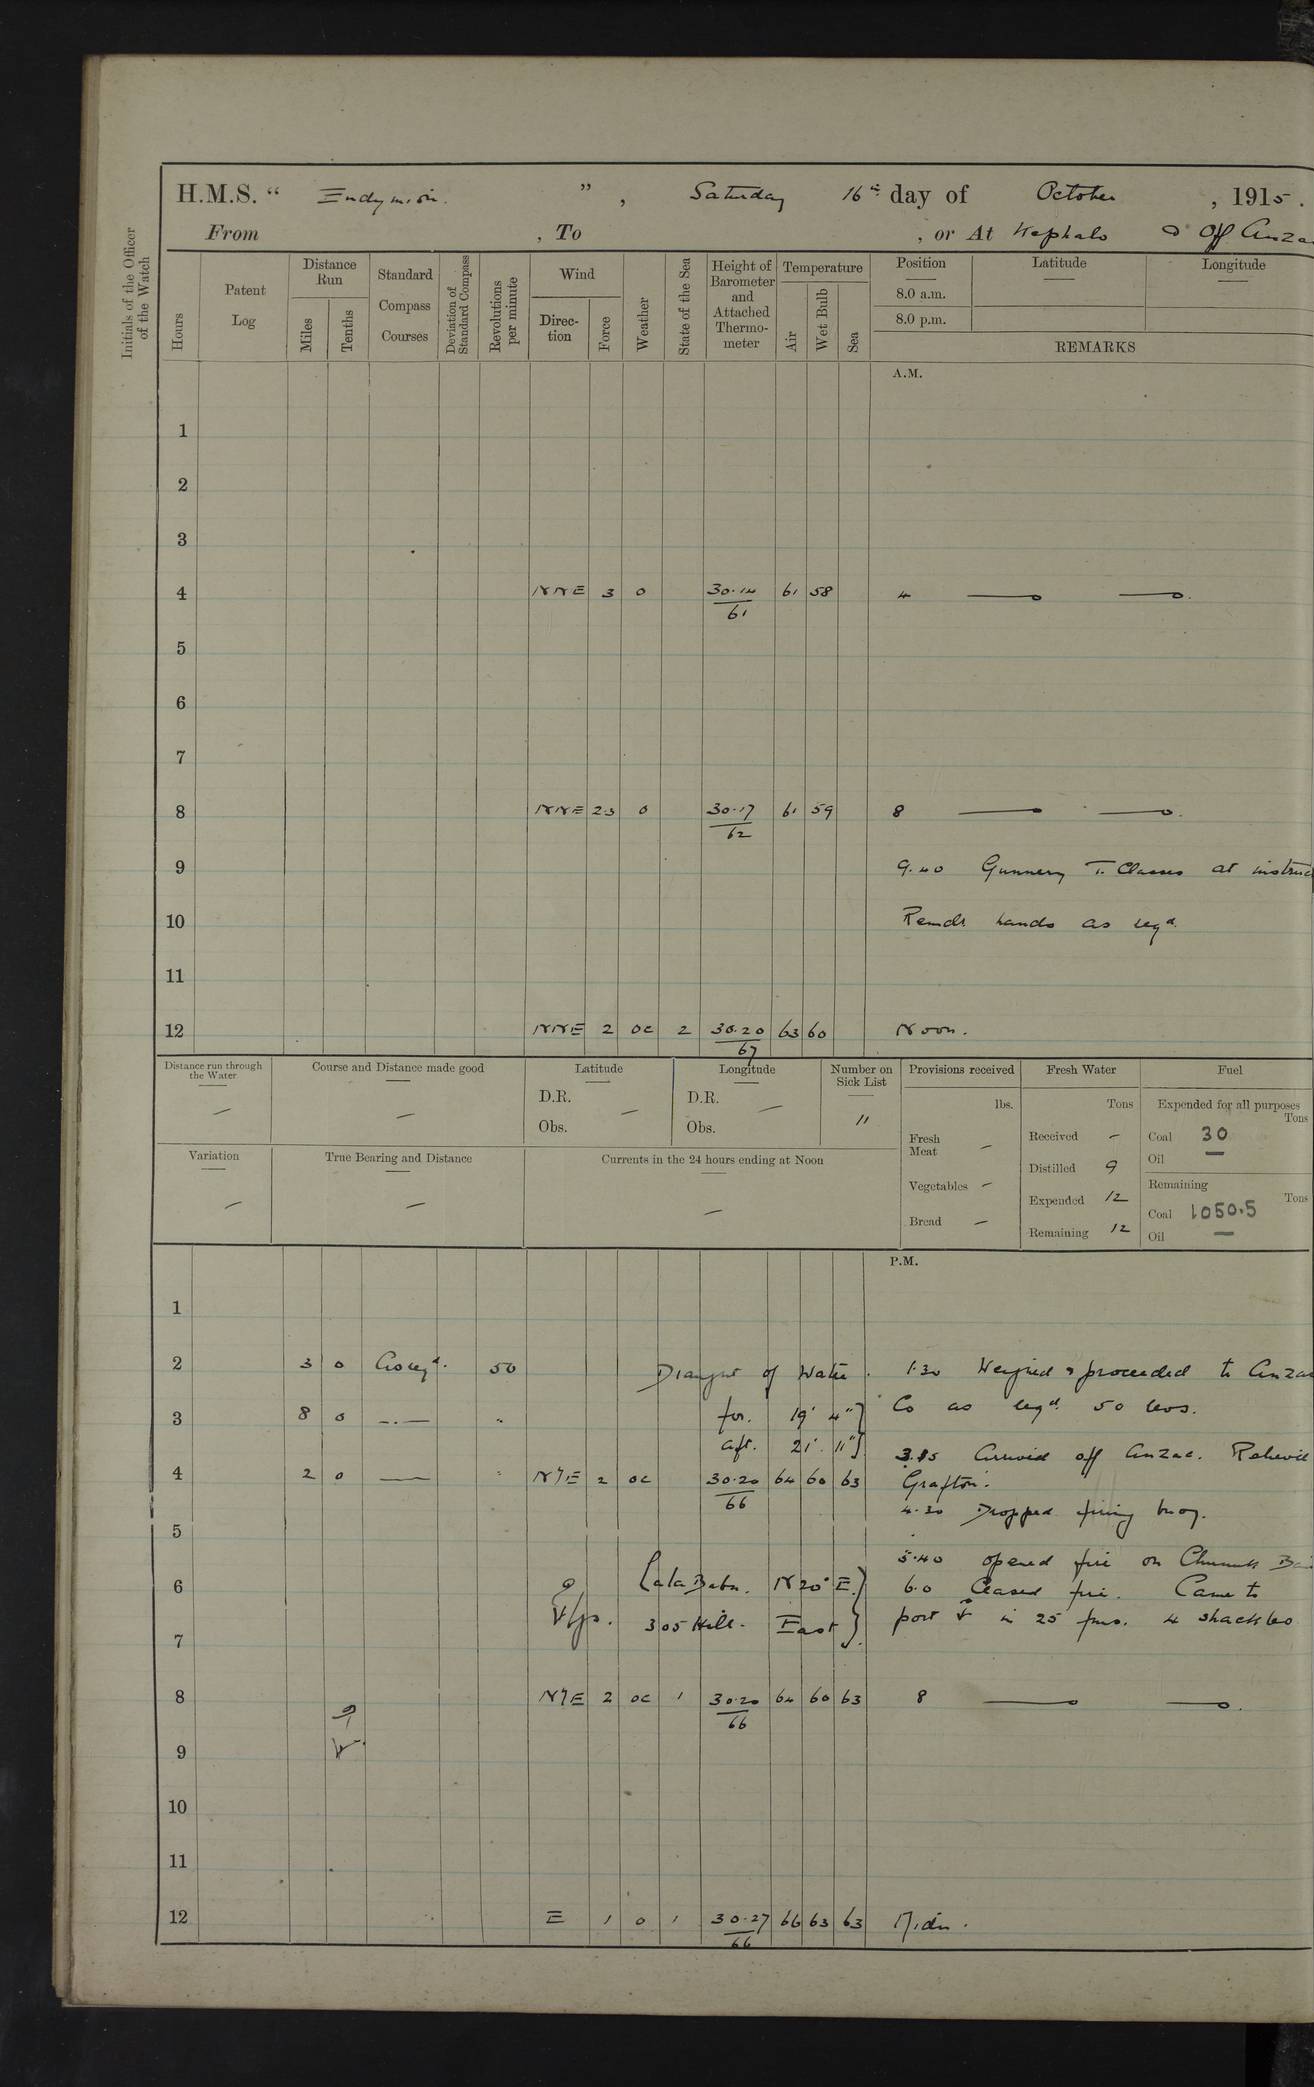 H.M.S. “ Endymion. ” , Saturday 16th day of October , 1915.
From , To , or At Kephalo & off Anza
Initials of the Officer of the Watch
Hours
Patent Log
Distance Run
Miles
Tenths
Standard Compass Courses
Deviation of Standard Compass
Revolutions per minute
Wind
Direc-tion
Force
Weather
State of the Sea
Height of Barometer and Attached Thermo-meter
Temperature
Air
Wet Bulb
Sea
Position
8.0 a.m.
8.0 p.m.
Latitude
Longitude
REMARKS
A.M.
1
2
3
4 NNE 3 o 30.14 61 61 58 4
5
6
7
8 NNE 2.3 o 30.17 62 61 59 8
9 9.40 Gunnery T. Classes at instruc
10 Remdr hands as reqd.
11
12 NNE 2 oc 2 30.20 67 63 60 Noon.
Distance run through the Water —
Course and Distance made good —
Latitude D.R. — Obs.
Longitude D.R. — Obs.
Number on Sick List 11
Variation —
True Bearing and Distance —
Currents in the 24 hours ending at Noon —
Provisions received
lbs.
Fresh Meat —
Vegetables —
Bread —
Fresh Water
Tons
Received —
Distilled 9
Expended 12
Remaining 12
Fuel
Expended for all purposes
Tons
Coal 30
Oil —
Remaining
Tons
Coal 1050.5
Oil —
P.M.
1
2 3 0 As reqd. 50 Draught of Water. 1.30 Weighed & proceeded to Anza
3 8 0 —.— " for. 19' 4" Co as reqd. 50 revs.
aft. 21' 11" 3.15 Arrived off Anzac. Relieved
4 2 0 — " N'E 2 oc 30.20 66 64 60 63 Grafton.
4.30 Dropped firing buoy.
5
5.40 opened fire on Chunuk Ba
6 Lala Baba. N 20° E. 6.0 Ceased fire. Came to
305 Hill. East port in 25 fms. 4 shackles
7
8 N'E 2 oc 1 30.20 66 64 60 63 8
9
10
11
12 E 1 o 1 30.27 66 66 63 63 Midn.